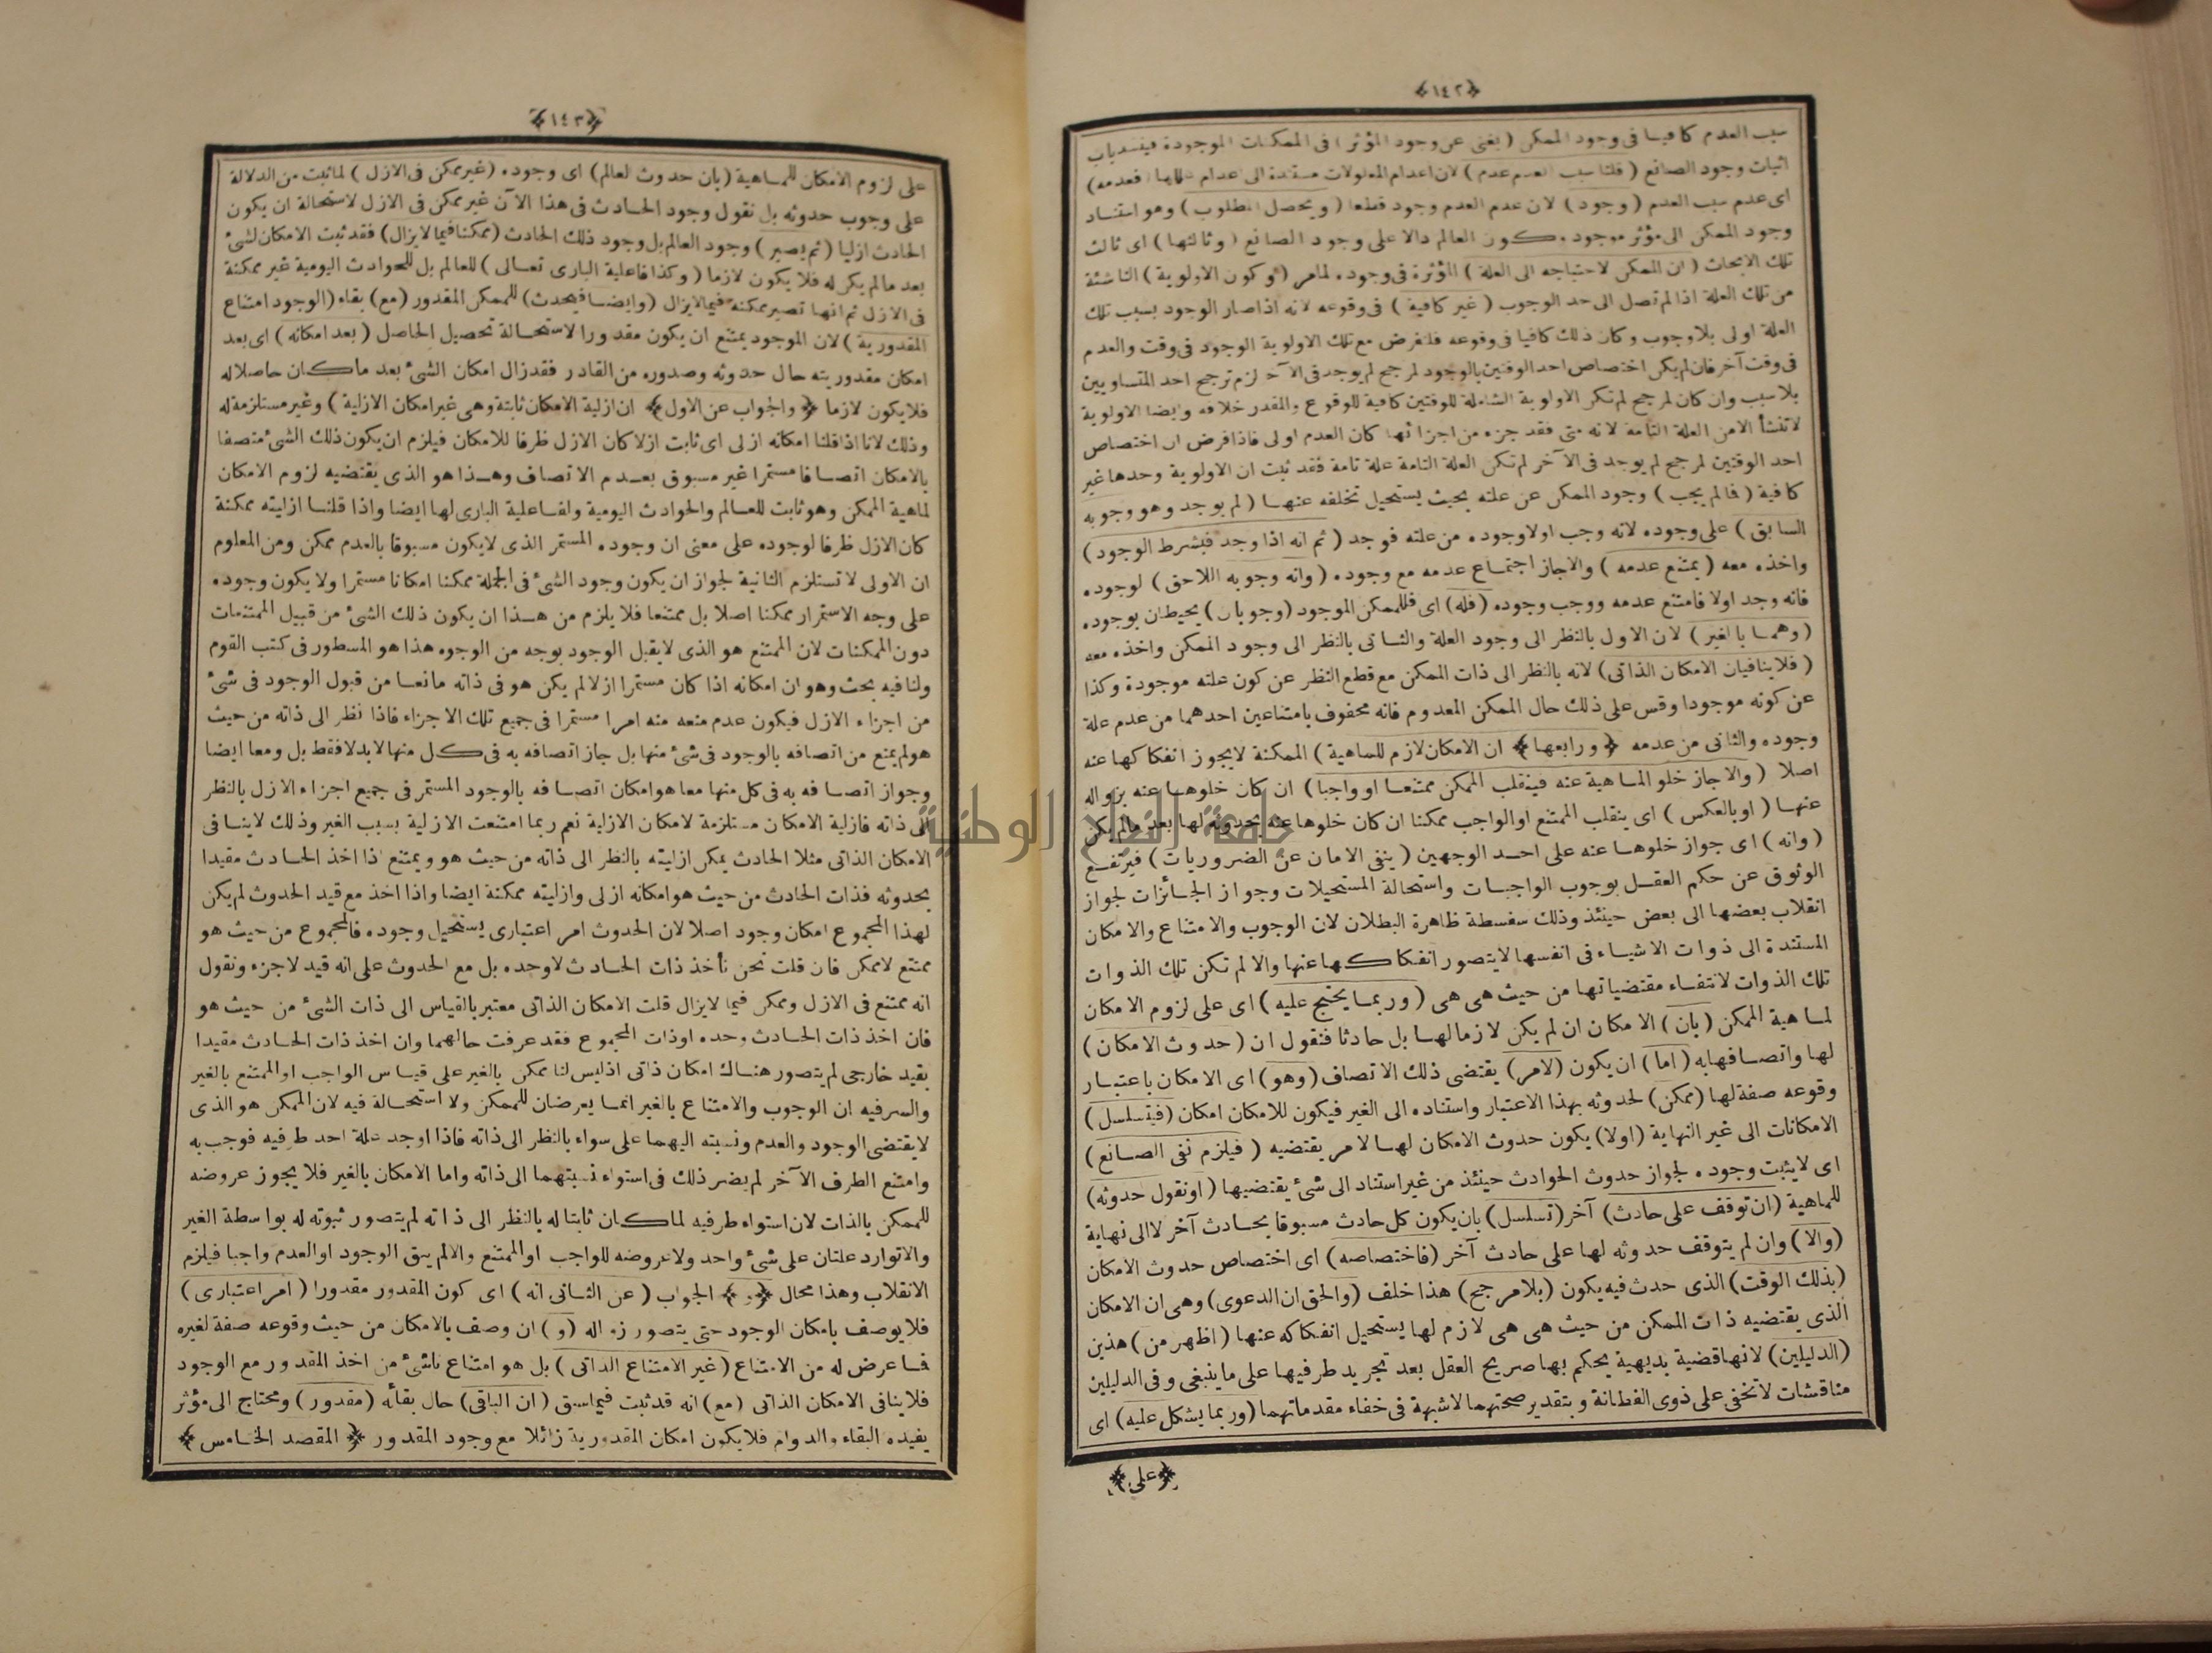 ﴿١٤٢﴾
سبب العدم كافيا فى وجود الممكن (يغنى عن وجود المؤثر) فى الممكنات الموجودة فينسد باب
اثبات وجود الصانع (قلنا سبب العدم عدم) لان اعدام المعلولات مستندة الى اعدام عللها (فعدمه)
اى عدم سبب العدم (وجود) لان عدم العدم وجود قطعا (ويحصل المطلوب) وهو استناد
وجود الممكن الى مؤثر موجود وكون العالم دالا على وجود الصانع (وثالثها) اى ثالث
تلك الابحاث (ان الممكن لاحتياجه الى العلة) المؤثرة فى وجوده لمامر (وكون الاولوية) الناشئة
من تلك العلة اذا لم تصل الى حد الوجوب (غير كافية) فى وقوعه لانه اذا صار الوجود بسبب تلك
العلة اولى بلا وجوب وكان ذلك كافيا فى وقوعه فلنفرض مع تلك الاولوية الوجود فى وقت والعدم
فى وقت آخر فان لم يكن اختصاص احد الوقتين بالوجود لمرجح لم يوجد فى الآخر لزم ترجح احد المتساويين
بلا سبب وان كان لمرجح لم تكن الاولوية الشاملة للوقتين كافية للوقوع والمقدر خلافه وايضا الاولوية
لا تنشأ الا من العلة التامة لانه متى فقد جزء من اجزائها كان العدم اولى فاذا فرض ان اختصاص
احد الوقتين لمرجح لم يوجد فى الآخر لم تكن العلة التامة علة تامة فقد ثبت ان الاولوية وحدها غير
كافية (فالم يجب) وجود الممكن عن علته بحيث يستحيل تخلفه عنهـا (لم يوجد وهو وجوبه
السابق) على وجوده لانه وجب اولا وجوده من علته فوجد (ثم انه اذا وجد فبشرط الوجود)
واخذه معه (يمتنع عدمه) والا جاز اجتماع عدمه مع وجوده (وانه وجوبه اللاحق) لوجوده
فانه وجد اولا فامتنع عدمه ووجب وجوده (فله) اى فللممكن الموجود (وجوبان) يحيطان بوجوده
(وهما بالغير) لان الاول بالنظر الى وجود العلة والثانى بالنظر الى وجود الممكن واخذه معه
(فلا ينافيان الامكان الذاتى) لانه بالنظر الى ذات الممكن مع قطع النظر عن كون علته موجودة وكذا
عن كونه موجودا وقس على ذلك حال الممكن المعدوم فانه محفوف بامتناعين احدهما من عدم علة
وجوده والثانى من عدمه ﴿ورابعها﴾ ان الامكان لازم للماهية) الممكنة لا يجوز انفكاكها عنه
اصلا (والا جاز خلو الماهية عنه فينقلب الممكن ممتنعا او واجبا) ان كان خلوها عنه بزواله
عنهـا (او بالعكس) اى ينقلب الممتنع او الواجب ممكنا ان كان خلوها عنه بحدوثه لها بعد مالم يكن
(وانه) اى جواز خلوها عنه على احد الوجهين (ينفى الامان عن الضروريات) فيرتفع
الوثوق عن حكم العقل بوجوب الواجبات واستحالة المستحيلات وجواز الجائزات لجواز
انقلاب بعضها الى بعض حينئذ وذلك سفسطة ظاهرة البطلان لان الوجوب والامتناع والامكان
المستندة الى ذوات الاشياء فى انفسها لا يتصور انفكاكها عنها والا لم تكن تلك الذوات
تلك الذوات لانتفاء مقتضياتها من حيث هى هى (وربما يحتج عليه) اى على لزوم الامكان
لماهية الممكن (بان) الامكان ان لم يكن لازما لها بل حادثا فنقول ان (حدوث الامكان)
لها واتصافها به (اما) ان يكون (لامر) يقتضى ذلك الاتصاف (وهو) اى الامكان باعتبار
وقوعه صفة لها (ممكن) لحدوثه بهذا الاعتبار واستناده الى الغير فيكون للامكان امكان (فيتسلسل)
الامكانات الى غير النهاية (اولا) يكون حدوث الامكان لها لامر يقتضيه (فيلزم نفى الصانع)
اى لا يثبت وجوده لجواز حدوث الحوادث حينئذ من غير استناد الى شئ يقتضيها (او نقول حدوثه)
للماهية (ان توقف على حادث) آخر (تسلسل) بان يكون كل حادث مسبوقا بحادث آخر لا الى نهاية
(والا) وان لم يتوقف حدوثه لها على حادث آخر (فاختصاصه) اى اختصاص حدوث الامكان
(بذلك الوقت) الذى حدث فيه يكون (بلا مرجح) هذا خلف (والحق ان الدعوى) وهى ان الامكان
الذى يقتضيه ذات الممكن من حيث هى هى لازم لها يستحيل انفكاكه عنها (اظهر من) هذين
(الدليلين) لانها قضية بديهية يحكم بها صريح العقل بعد تجريد طرفيها على ما ينبغى وفى الدليلين
مناقشات لا تخفى على ذوى الفطانة وبتقدير صحتهما لا شبهة فى خفاء مقدماتهما (وربما يشكل عليه) اى
﴿على﴾
﴿١٤٣﴾
على لزوم الامكان للماهية (بان حدوث العالم) اى وجوده (غير ممكن فى الازل) لما ثبت من الدلالة
على وجوب حدوثه بل نقول وجود الحادث فى هذا الآن غير ممكن فى الازل لاستحالة ان يكون
الحادث ازليا (ثم يصير) وجود العالم بل وجود ذلك الحادث (ممكنا فيما لا يزال) فقد ثبت الامكان لشئ
بعد مالم يكن له فلا يكون لازما (وكذا فاعلية البارى تعالى) للعالم بل للحوادث اليومية غير ممكنة
فى الازل ثم انها تصير ممكنة فيما لا يزال (وايضا فيحدث) للممكن المقدور (مع) بقاء (الوجود امتناع
المقدورية) لان الموجود يمتنع ان يكون مقدورا لاستحالة تحصيل الحاصل (بعد امكانه) اى بعد
امكان مقدوريته حال حدوثه وصدوره من القادر فقد زال امكان الشئ بعد ما كان حاصلا له
فلا يكون لازما ﴿والجواب عن الاول﴾ ان ازلية الامكان ثابتة وهى غير امكان الازلية) وغير مستلزمة له
وذلك لانا اذا قلنا امكانه ازلى اى ثابت ازلا كان الازل ظرفا للامكان فيلزم ان يكون ذلك الشئ متصفا
بالامكان اتصافا مستمرا غير مسبوق بعدم الاتصاف وهذا هو الذى يقتضيه لزوم الامكان
لماهية الممكن وهو ثابت للعالم والحوادث اليومية ولفاعلية البارى لها ايضا واذا قلنا ازليته ممكنة
كان الازل ظرفا لوجوده على معنى ان وجوده المستمر الذى لا يكون مسبوقا بالعدم ممكن ومن المعلوم
ان الاولى لا تستلزم الثانية لجواز ان يكون وجود الشئ فى الجملة ممكنا امكانا مستمرا ولا يكون وجوده
على وجه الاستمرار ممكنا اصلا بل ممتنعا فلا يلزم من هذا ان يكون ذلك الشئ من قبيل الممتنعات
دون الممكنات لان الممتنع هو الذى لا يقبل الوجود بوجه من الوجوه هذا هو المسطور فى كتب القوم
ولنا فيه بحث وهو ان امكانه اذا كان مستمرا ازلا لم يكن هو فى ذاته مانعا من قبول الوجود فى شئ
من اجزاء الازل فيكون عدم منعه منه امرا مستمرا فى جميع تلك الاجزاء فاذا نظر الى ذاته من حيث
هو لم يمنع من اتصافه بالوجود فى شئ منها بل جاز اتصافه به فى كل منها لا بدلا فقط بل ومعا ايضا
وجواز اتصافه به فى كل منها معا هو امكان اتصافه بالوجود المستمر فى جميع اجزاء الازل بالنظر
الى ذاته فازلية الامكان مستلزمة لامكان الازلية نعم ربما امتنعت الازلية بسبب الغير وذلك لا ينافى
الامكان الذاتى مثلا الحادث يمكن ازليته بالنظر الى ذاته من حيث هو ويمتنع اذا اخذ الحادث مقيدا
بحدوثه فذات الحادث من حيث هو امكانه ازلى وازليته ممكنة ايضا واذا اخذ مع قيد الحدوث لم يكن
لهذا المجموع امكان وجود اصلا لان الحدوث امر اعتبارى يستحيل وجوده فالمجموع من حيث هو
ممتنع لا ممكن فان قلت نحن نأخذ ذات الحادث لا وحده بل مع الحدوث على انه قيد لا جزء ونقول
انه ممتنع فى الازل وممكن فيما لا يزال قلت الامكان الذاتى معتبر بالقياس الى ذات الشئ من حيث هو
فان اخذ ذات الحادث وحده او ذات المجموع فقد عرفت حالهما وان اخذ ذات الحادث مقيدا
بقيد خارجى لم يتصور هناك امكان ذاتى اذ ليس لنا ممكن بالغير على قياس الواجب او الممتنع بالغير
والسر فيه ان الوجوب والامتناع بالغير انما يعرضان للممكن ولا استحالة فيه لان الممكن هو الذى
لا يقتضى الوجود والعدم ونسبته اليهما على سواء بالنظر الى ذاته فاذا اوجد علة احد طرفيه فوجب به
وامتنع الطرف الآخر لم يضر ذلك فى استواء نسبتهما الى ذاته واما الامكان بالغير فلا يجوز عروضه
للممكن بالذات لان استواء طرفيه لما كان ثابتا له بالنظر الى ذاته لم يتصور ثبوته له بواسطة الغير
والا توارد علتان على شئ واحد ولا عروضه للواجب او الممتنع والا لم يبق الوجود او العدم واجبا فيلزم
الانقلاب وهذا محال ﴿و﴾ الجواب (عن الثانى انه) اى كون المقدور مقدورا (امر اعتبارى)
فلا يوصف بامكان الوجود حتى يتصور زواله (و) ان وصف بالامكان من حيث وقوعه صفة لغيره
فما عرض له من الامتناع (غير الامتناع الذاتى) بل هو امتناع ناشئ من اخذ المقدور مع الوجود
فلا ينافى الامكان الذاتى (مع) انه قد ثبت فيما سبق (ان الباقى) حال بقائه (مقدور) ومحتاج الى مؤثر
يفيده البقاء والدوام فلا يكون امكان المقدورية زائلا مع وجود المقدور ﴿المقصد الخامس﴾
جامعة النجاح الوطنية